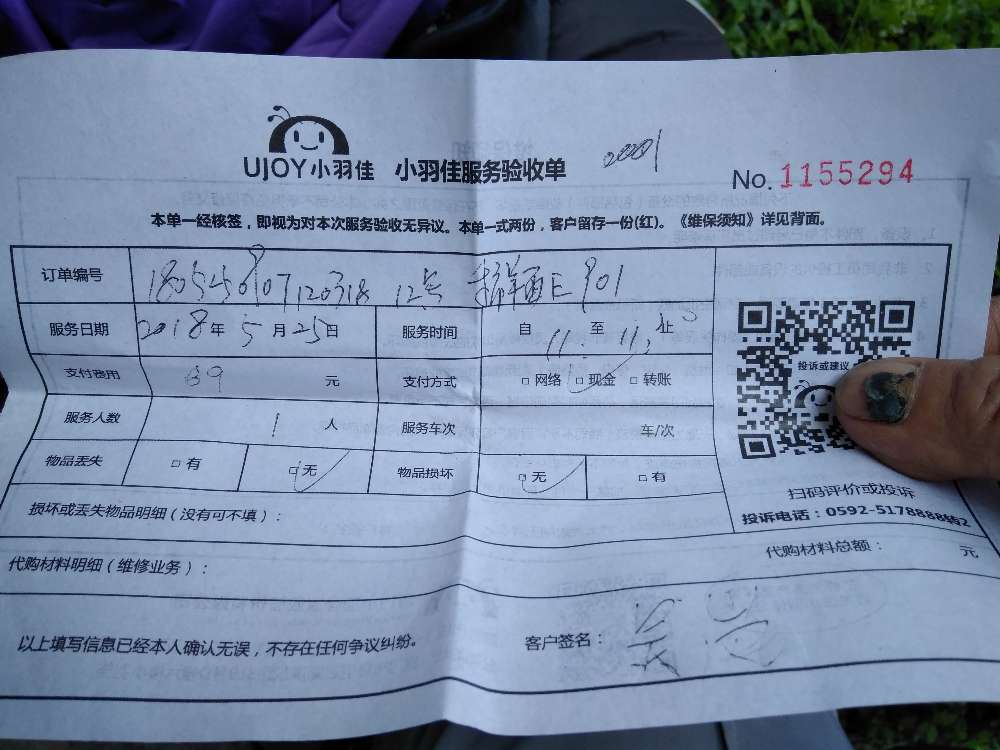 UJOY小羽佳 小羽佳服务验收单
No. 1155294
本单一经核签，即视为对本次服务验收无异议。本单一式两份，客户留存一份(红)。《维保须知》详见背面。
订单编号 901
服务日期 2018年5月25日 服务时间 自 11: 至 11: 止
支付费用 89 元 支付方式 □网络 □现金 □转账
服务人数 1 人 服务车次 车/次
物品丢失 □有 □无 物品损坏 □无 □有
投诉或建议
扫码评价或投诉
投诉电话：0592-5178888转2
损坏或丢失物品明细（没有可不填）：
代购材料明细（维修业务）： 代购材料总额： 元
以上填写信息已经本人确认无误，不存在任何争议纠纷。 客户签名：